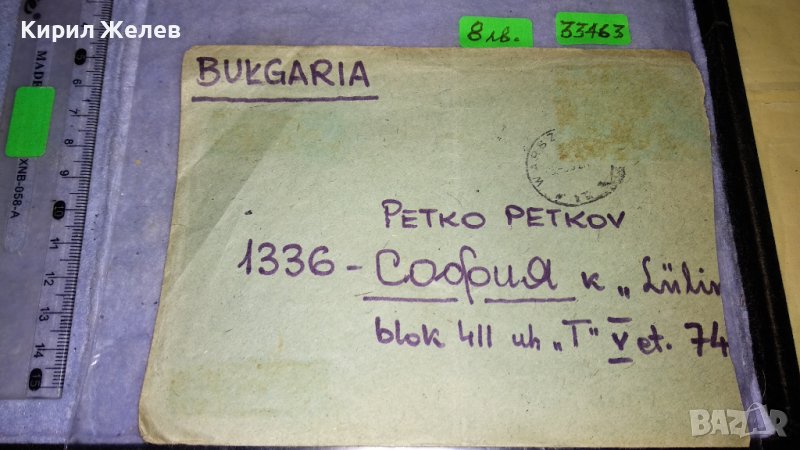 Кирил Желев
8 лв.
33463
BUŁGARIA
WARSZ
PETKO PETKOV
1336 - София к „Lülin
blok 411 uh „T" V et. 74
MADE
XNB-058-A
6
7
8
9
10
11
12
13
14
15
BAZAR